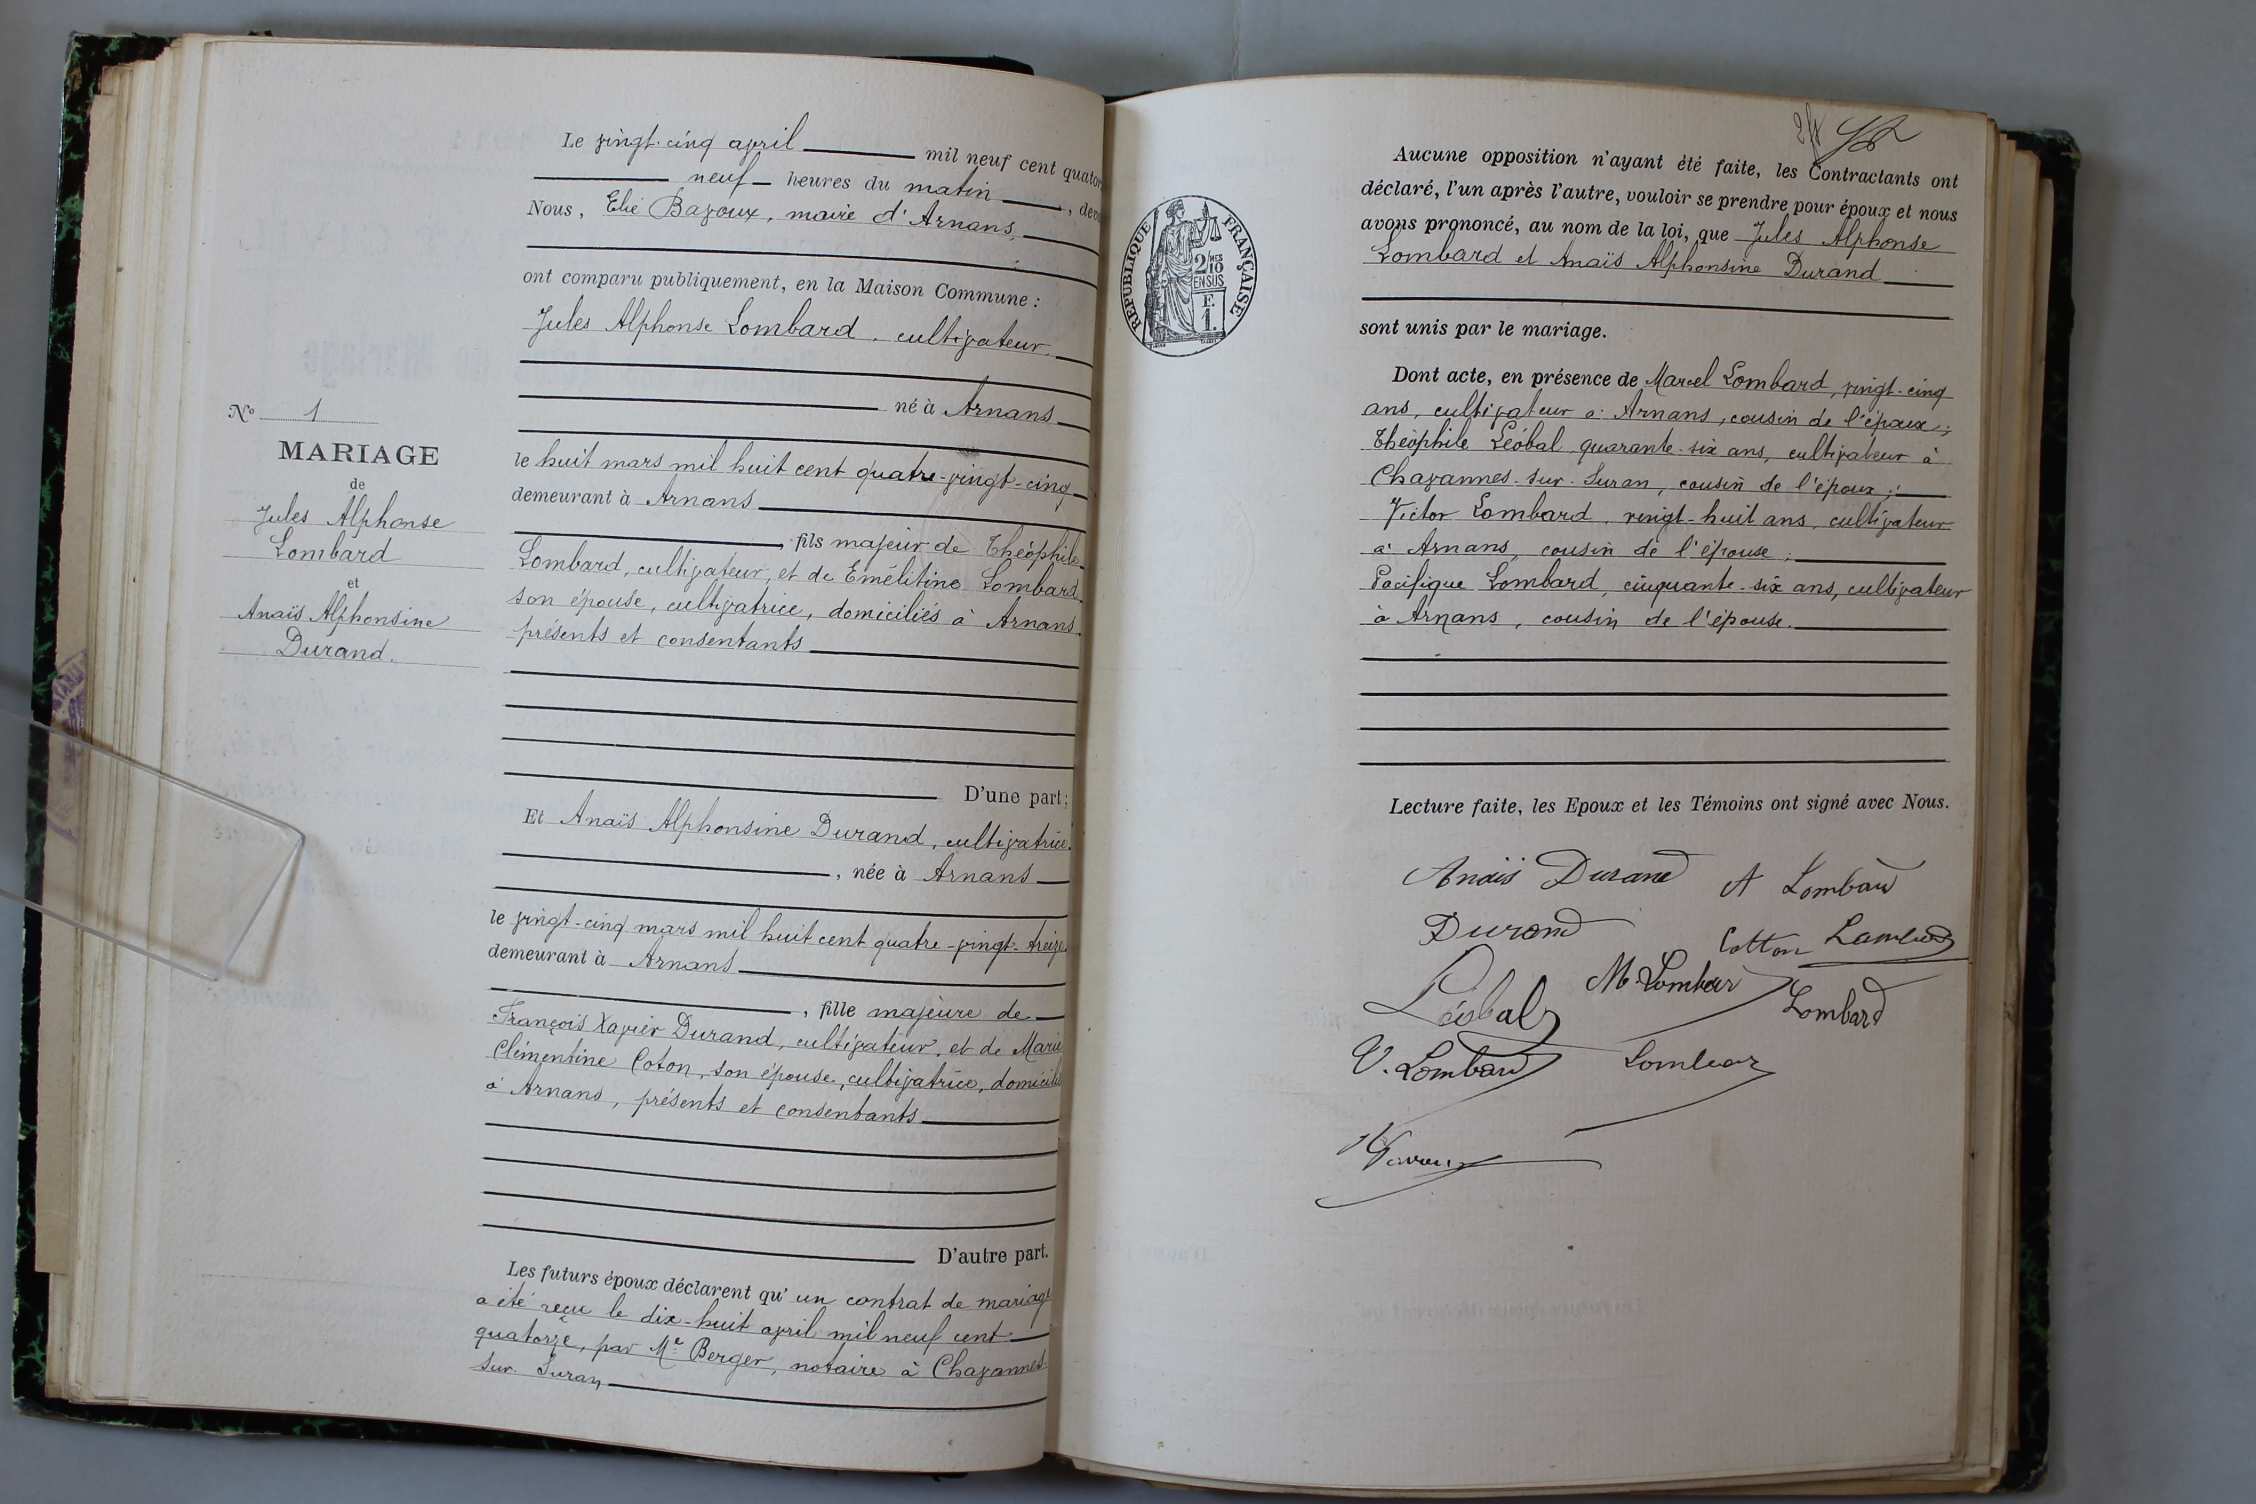 Le vingt-cinq avril mil neuf cent quator
neuf heures du matin, deva
Nous, Elie Bavoux, maire d'Arnans,
ont comparu publiquement, en la Maison Commune :
Jules Alphonse Lombard, cultivateur,
né à Arnans
le huit mars mil huit cent quatre-vingt-cinq
demeurant à Arnans
, fils majeur de Théophile
Lombard, cultivateur, et de Emélitine Lombard
son épouse, cultivatrice, domiciliés à Arnans.
présents et consentants
D'une part;
Et Anaïs Alphonsine Durand, cultivatrice.
, née à Arnans
le vingt-cinq mars mil huit cent quatre-vingt-treize
demeurant à Arnans
, fille majeure de
François Xavier Durand, cultivateur, et de Marie
Clémentine Coton, son épouse, cultivatrice, domiciliés
à Arnans, présents et consentants
D'autre part.
Les futurs époux déclarent qu'un contrat de mariage
a été reçu le dix-huit avril mil neuf cent
quatorze, par Me Berger, notaire à Chavannes
sur Suran
No 1
MARIAGE
de
Jules Alphonse
Lombard
et
Anaïs Alphonsine
Durand.
24
RÉPUBLIQUE FRANÇAISE
2/MES
10
EN SUS
F.
1.
Aucune opposition n'ayant été faite, les Contractants ont
déclaré, l'un après l'autre, vouloir se prendre pour époux et nous
avons prononcé, au nom de la loi, que Jules Alphonse
Lombard et Anaïs Alphonsine Durand
sont unis par le mariage.
Dont acte, en présence de Marcel Lombard, vingt-cinq
ans, cultivateur à Arnans, cousin de l'époux;
Théophile Léóbal quarante-six ans, cultivateur à
Chavannes-sur-Suran, cousin de l'époux;
Victor Lombard, vingt-huit ans, cultivateur
à Arnans, cousin de l'épouse;
Pacifique Lombard, cinquante-six ans, cultivateur
à Arnans, cousin de l'épouse.
Lecture faite, les Epoux et les Témoins ont signé avec Nous.
Anaïs Durand A Lombard
Durand Cotton Lombard
Léobal M Lombard Lombard
V. Lombard Lombard